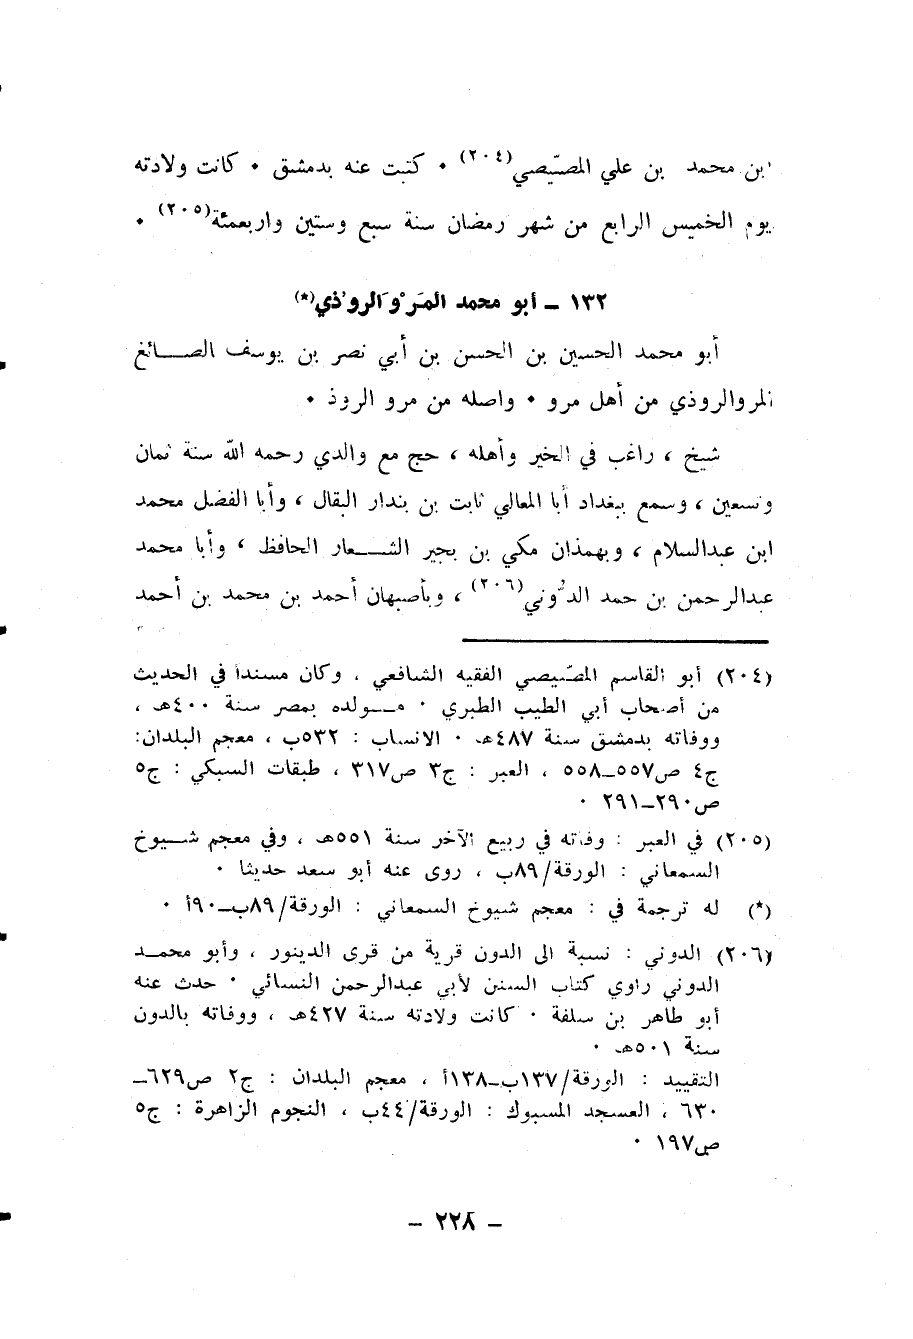 ابن محمد بن علي المصّيصي(٢٠٤) ٠ كتبت عنه بدمشق ٠ كانت ولادته
يوم الخميس الرابع من شهر رمضان سنة سبع وستين واربعمئة(٢٠٥) ٠
١٣٢ ــ أبو محمد المَرْوَالروُذي(*)
أبو محمد الحسين بن الحسن بن أبي نصر بن يوسف الصــائغ
المروالروذي من أهل مرو ٠ واصله من مرو الروذ ٠
شيخ ، راغب في الخير وأهله ، حج مع والدي رحمه الله سنة ثمان
وتسعين ، وسمع ببغداد أبا المعالي ثابت بن بندار البقال ، وأبا الفضل محمد
ابن عبدالسلام ، وبهمذان مكي بن بجير الشــعار الحافظ ، وأبا محمد
عبدالرحمن بن حمد الدُوني(٢٠٦) ، وبأصبهان أحمد بن محمد بن أحمد
(٢٠٤) أبو القاسم المصّيصي الفقيه الشافعي ، وكان مسندا في الحديث
من أصحاب أبي الطيب الطبري ٠ مــولده بمصر سنة ٤٠٠هـ ،
ووفاته بدمشق سنة ٤٨٧هـ ٠ الانساب : ٥٣٢ب ، معجم البلدان:
ج٤ ص٥٥٧ــ٥٥٨ ، العبر : ج٣ ص٣١٧ ، طبقات السبكي : ج٥
ص٢٩٠ــ٢٩١ ٠
(٢٠٥) في العبر : وفاته في ربيع الآخر سنة ٥٥١هـ ، وفي معجم شــيوخ
السمعاني : الورقة/٨٩ب ، روى عنه أبو سعد حديثا ٠
(*) له ترجمة في : معجم شيوخ السمعاني : الورقة/٨٩بــ٩٠أ ٠
(٢٠٦) الدوني : نسبة الى الدون قرية من قرى الدينور ، وأبو محمــد
الدوني راوي كتاب السنن لأبي عبدالرحمن النسائي ٠ حدث عنه
أبو طاهر بن سلفة ٠ كانت ولادته سنة ٤٢٧هـ ، ووفاته بالدون
سنة ٥٠١هـ ٠
التقييد : الورقة/١٣٧بــ١٣٨أ ، معجم البلدان : ج٢ ص٦٢٩ــ
٦٣٠ ، العسجد المسبوك : الورقة/٤٤ب ، النجوم الزاهرة : ج٥
ص١٩٧ ٠
ــ ٢٢٨ ــ